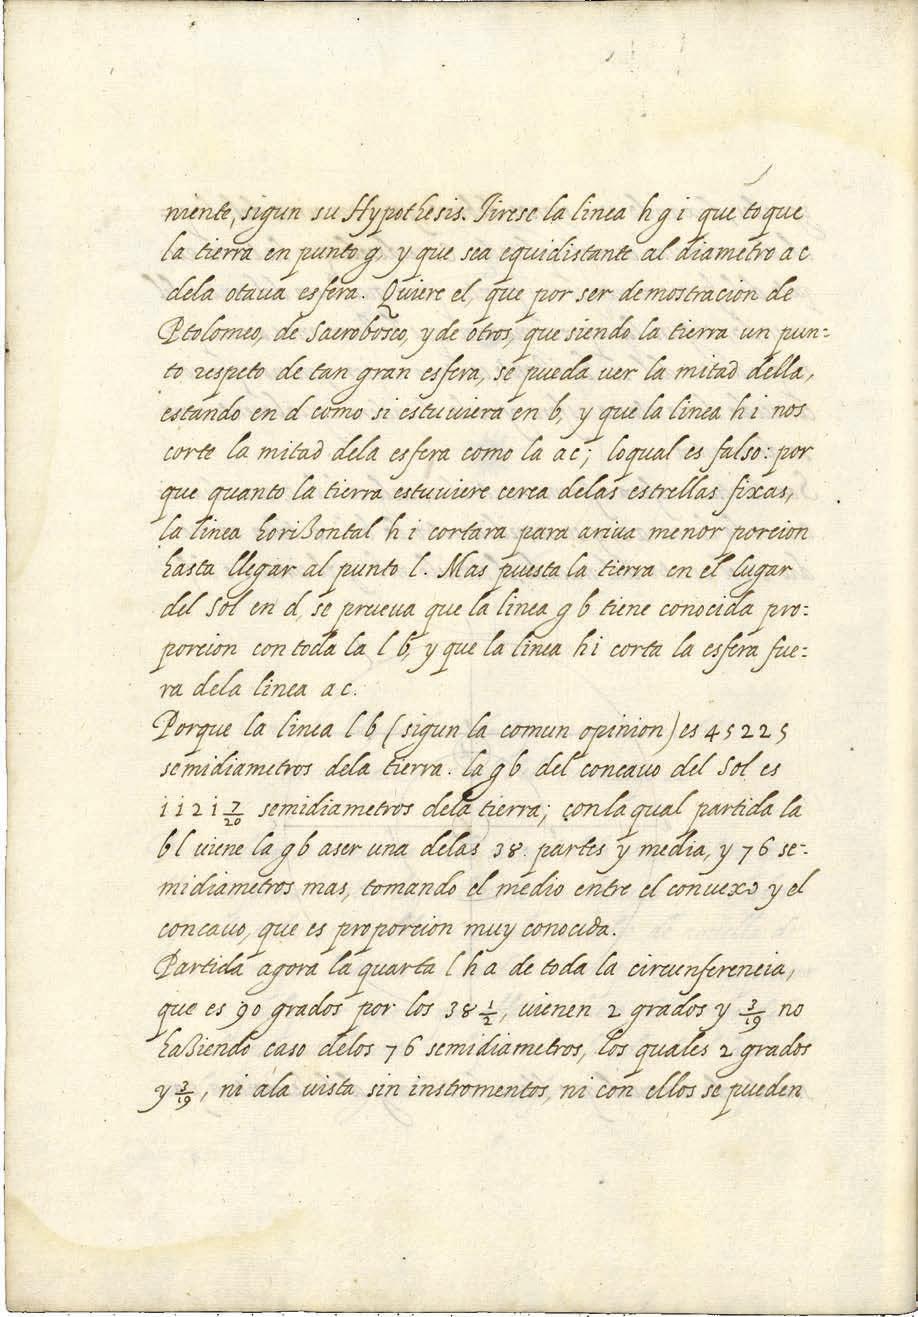 niente, sigun su Hypothesis. Tirese la linea h g i que toque
la tierra en punto g, y que sea equidistante al diametro a c
dela otaua esfera. Quiere el, que por ser demostracion de
Ptolomeo, de Sacrobosco, y de otros, que siendo la tierra un pun=
to respeto de tan gran esfera, se pueda uer la mitad della,
estando en d como si estuuiera en b, y que la linea h i nos
corte la mitad dela esfera como la a c; loqual es falso: por
que quanto la tierra estuuiere cerca delas estrellas fixas,
la linea horiZontal h i cortara para ariua menor porcion
hasta llegar al punto l. Mas puesta la tierra en el lugar
del Sol en d, se prueua que la linea g b tiene conocida pro=
porcion con toda la l b, y que la linea h i corta la esfera fue=
ra dela linea a c.
Porque la linea l b (sigun la comun opinion) es 45225
semidiametros dela tierra. la g b del concauo del Sol es
1121 7/20 semidiametros dela tierra; con la qual partida la
b l uiene la g b aser una delas 38. partes y media, y 76 se=
midiametros mas, tomando el medio entre el conuexo y el
concauo, que es proporcion muy conocida.
Partida agora la quarta l h a de toda la circunferencia,
que es 90 grados por los 38 1/2, uienen 2 grados y 3/19 no
haZiendo caso delos 76 semidiametros, los quales 2 grados
y 3/19, ni ala uista sin instromentos, ni con ellos se pueden